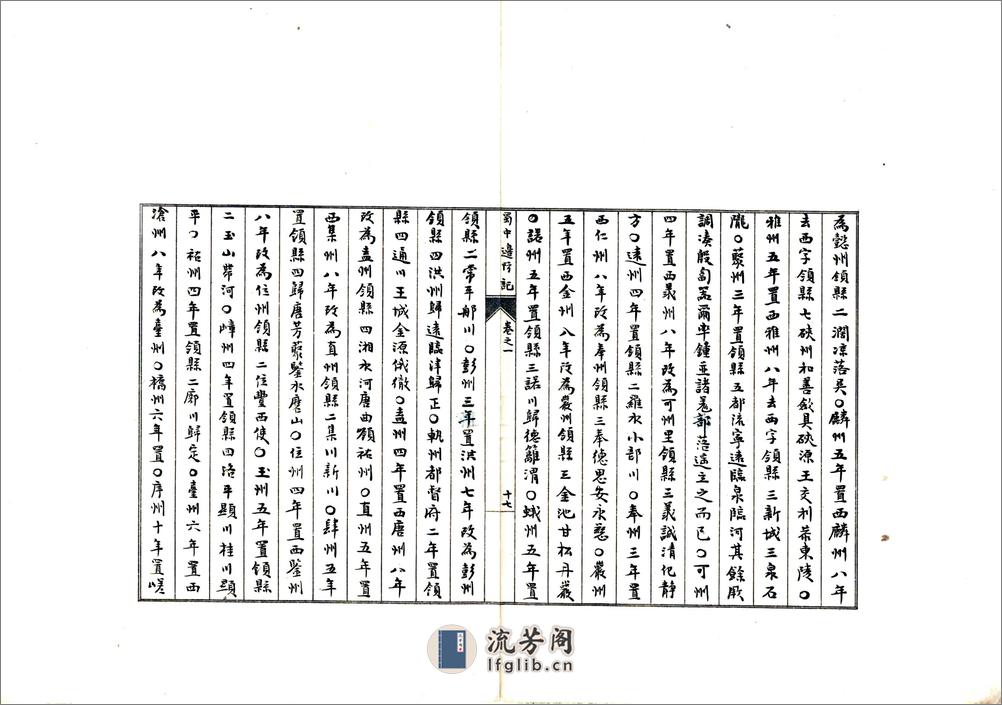 為懿州領縣二濶凉落吳〇麟州五年置西麟州八年
去西字領縣七硤州和善斂具硤源王交利恭東陵〇
雅州五年置西雅州八年去西字領縣三新城三泉石
隴〇藂州三年置領縣五都流寧遠臨泉臨河其餘厥
調湊般匐器爾率鍾並諸羗部落遙立之而已〇可州
四年置西義州八年改為可州里領縣三義誠清化靜
方〇遠州四年置領縣二羅水小部川〇奉州三年置
西仁州八年改為奉州領縣三奉德思安永慈〇巖州
五年置西金州八年改為巖州領縣三金池甘松丹巖
〇諾州五年置領縣三諾川歸德籬渭〇蛾州五年置
蜀中邊行記 卷之一 十七
領縣二常平郍川〇彭州三年置洪州七年改為彭州
領縣四洪州歸遠臨津歸正〇軌州都督府二年置領
縣四通川王城金源俄徹〇盍州四年置西唐州八年
改為盍州領縣四湘水河唐曲嶺祐州〇直州五年置
西集州八年改為直州領縣二集川新川〇肆州五年
置領縣四歸唐芳藂鹽水磨山〇位州四年置西鹽州
八年改為位州領縣二位豐西使〇玉州五年置領縣
二玉山帶河〇嶂州四年置領縣四洛平顯川桂川顯
平〇祐州四年置領縣二廓川歸定〇臺州六年置西
滄州八年改為臺州〇橋州六年置〇序州十年置嵯
流芳阁
lfglib.cn